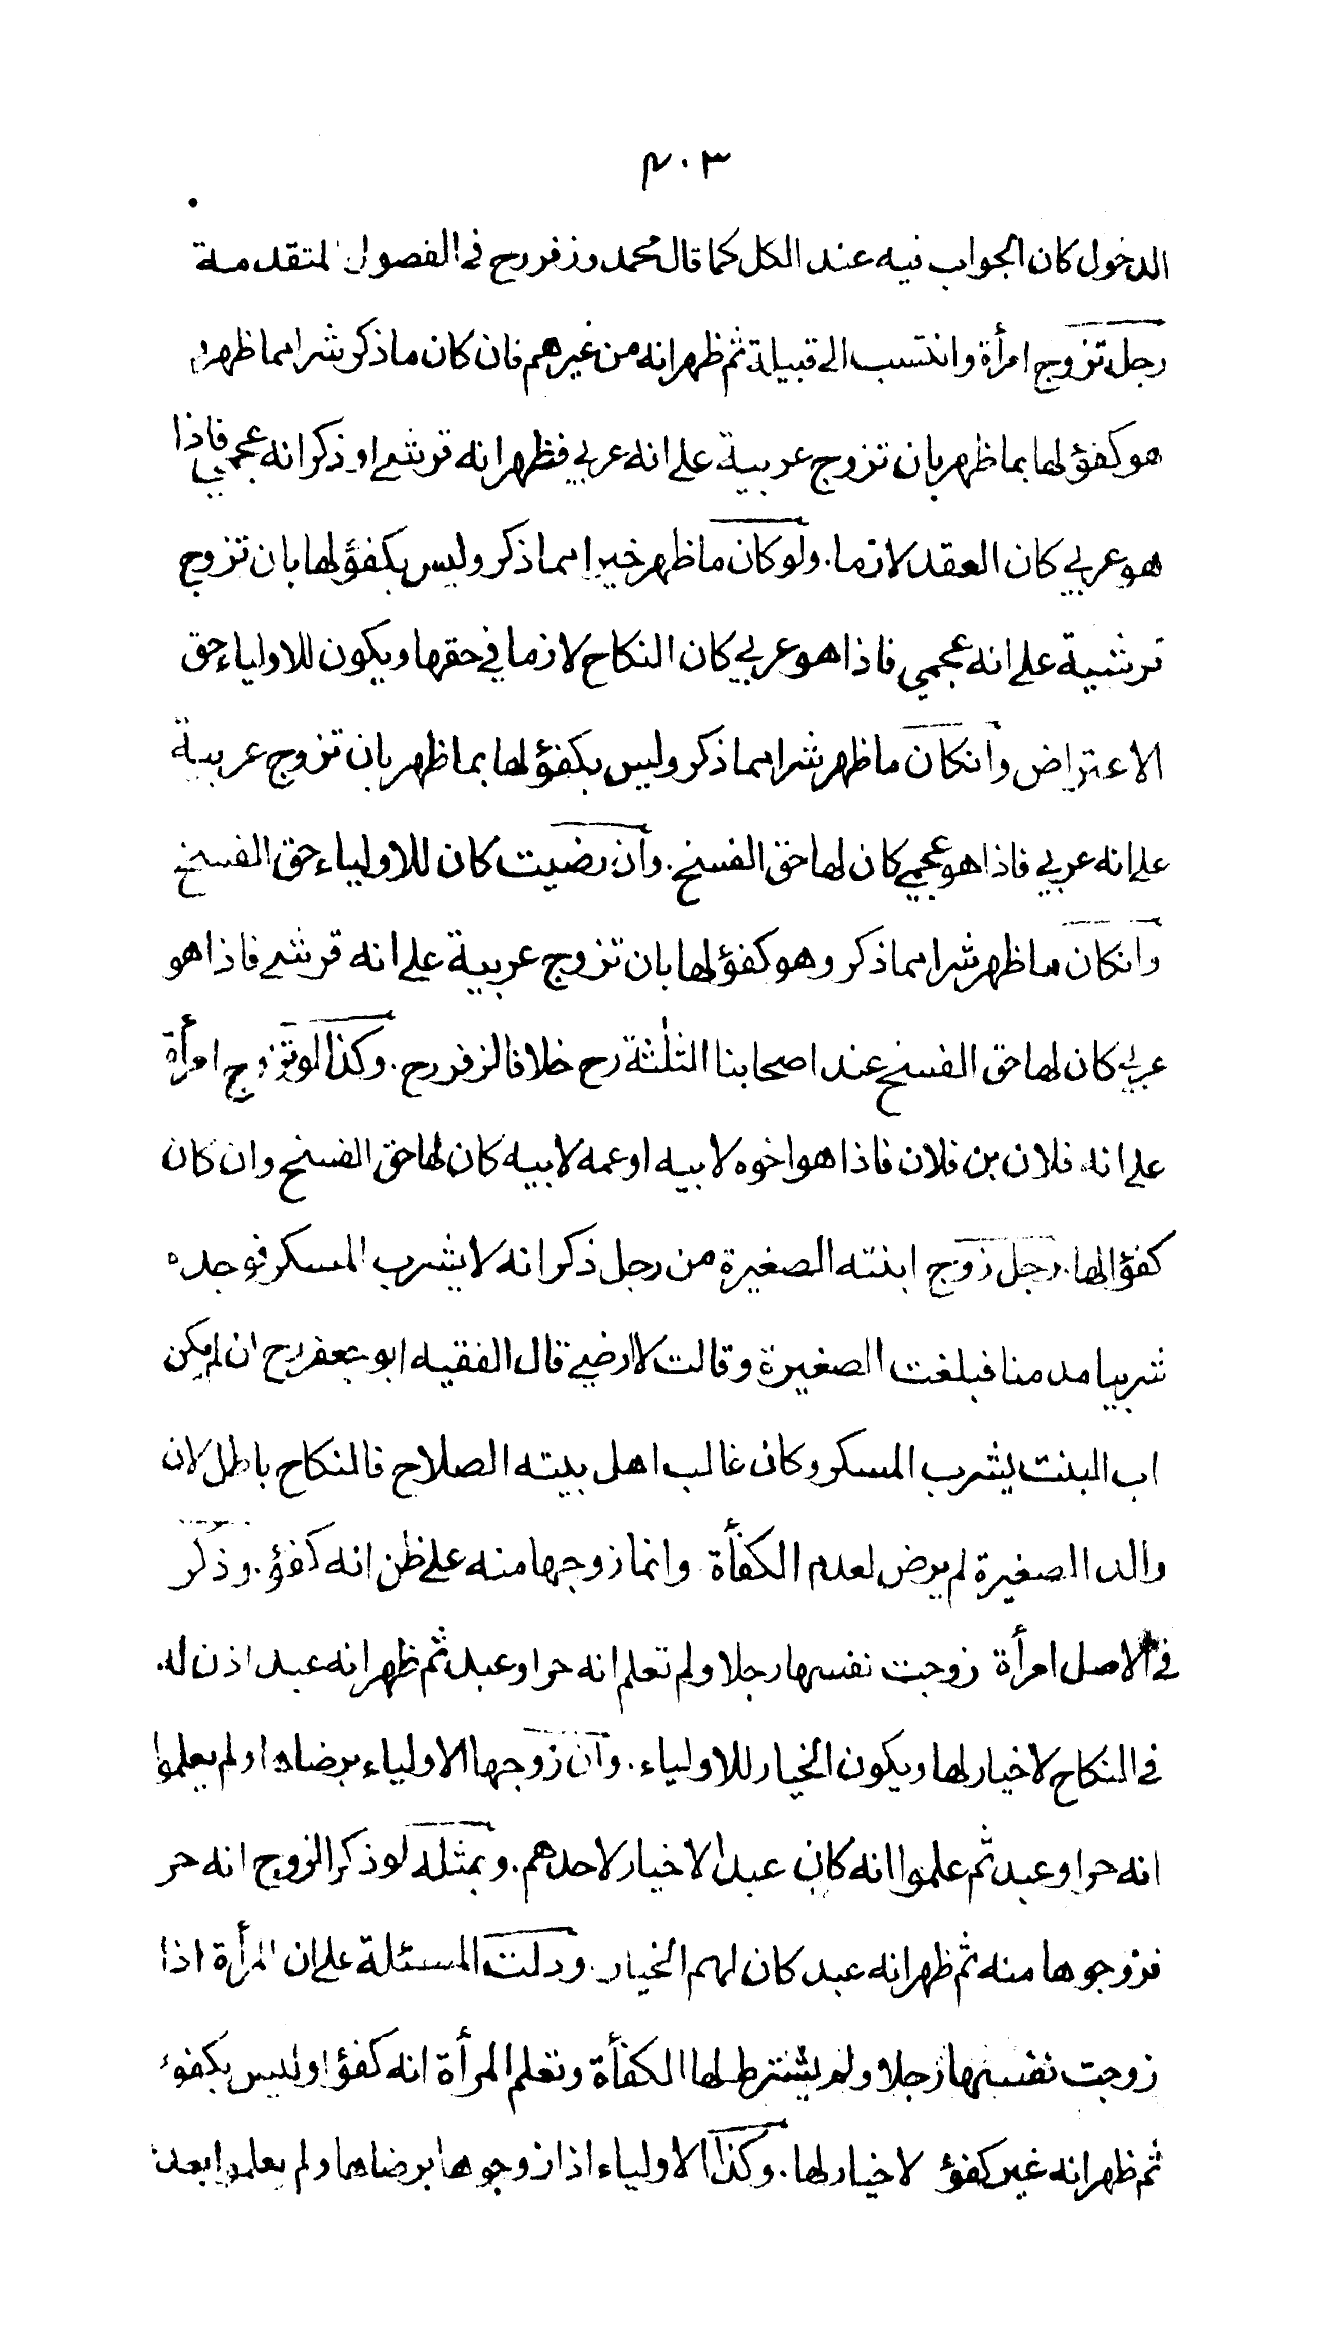 ٤٠٣
الدخول كان الجواب فيه عند الكل كما قال محمد وزفر رح في الفصول المتقدمة
رجل تزوج امرأة وانتسب الى قبيلة ثم ظهر انه من غيرهم فان كان ما ذكر شرا مما ظهر و
هو كفؤ لها بما ظهر بان تزوج عربية على انه عربي فظهر انه قرشي او ذكر انه عجمي فاذا
هو عربي كان العقد لازما . ولو كان ما ظهر خيرا مما ذكر وليس بكفؤ لها بان تزوج
قرشية على انه عجمي فاذا هو عربي كان النكاح لازما في حقها ويكون للاولياء حق
الاعتراض وان كان ما ظهر شرا مما ذكر وليس بكفؤ لها بما ظهر بان تزوج عربية
على انه عربي فاذا هو عجمي كان لها حق الفسخ . وان رضيت كان للاولياء حق الفسخ
وان كان ما ظهر شرا مما ذكر وهو كفؤ لها بان تزوج عربية على انه قرشي فاذا هو
عربي كان لها حق الفسخ عند اصحابنا الثلثة رح خلافا لزفر رح . وكذا لو تزوج امرأة
على انه فلان بن فلان فاذا هو اخوه لابيه او عمه لابيه كان لها حق الفسخ وان كان
كفؤا لها . رجل زوج ابنته الصغيرة من رجل ذكر انه لا يشرب المسكر فوجده
شريبا مدمنا فبلغت الصغيرة وقالت لا ارضى قال الفقيه ابو جعفر رح ان لم يكن
اب البنت يشرب المسكر وكان غالب اهل بيته الصلاح فالنكاح باطل لان
والد الصغيرة لم يرض لعدم الكفأة وانما زوجها منه على ظن انه كفؤ . وذكر
في الاصل امرأة زوجت نفسها رجلا ولم تعلم انه حر او عبد ثم ظهر انه عبد اذن له
في النكاح لا خيار لها ويكون الخيار للاولياء . وان زوجها الاولياء برضاها ولم يعلموا
انه حر او عبد ثم علموا انه كان عبدا لا خيار لاحدهم . وبمثله لو ذكر الزوج انه حر
فزوجوها منه ثم ظهر انه عبد كان لهم الخيار . ودلت المسئلة على ان المرأة اذا
زوجت نفسها رجلا ولم يشترط لها الكفأة وتعلم المرأة انه كفؤ او ليس بكفوء
ثم ظهر انه غير كفؤ لا خيار لها . وكذا الاولياء اذا زوجوها برضاها ولم يعلموا بعدم